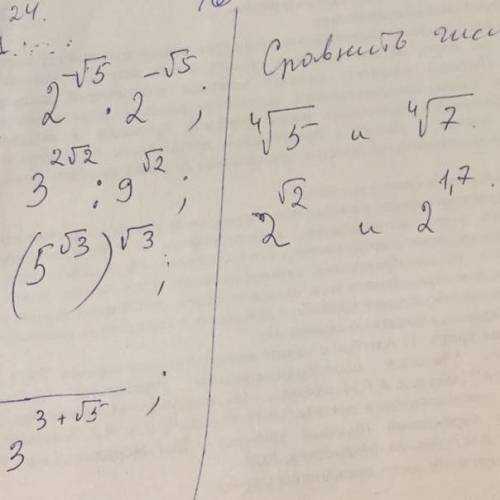 24.
1.
2^{-√5} · 2^{-√5} ;
3^{2√2} : 9^{√2} ;
(5^{√3})^{√3} ;
3^{3+√5} ;
Сравнить чис
⁴√5 и ⁴√7.
2^{√2} и 2^{1,7}.